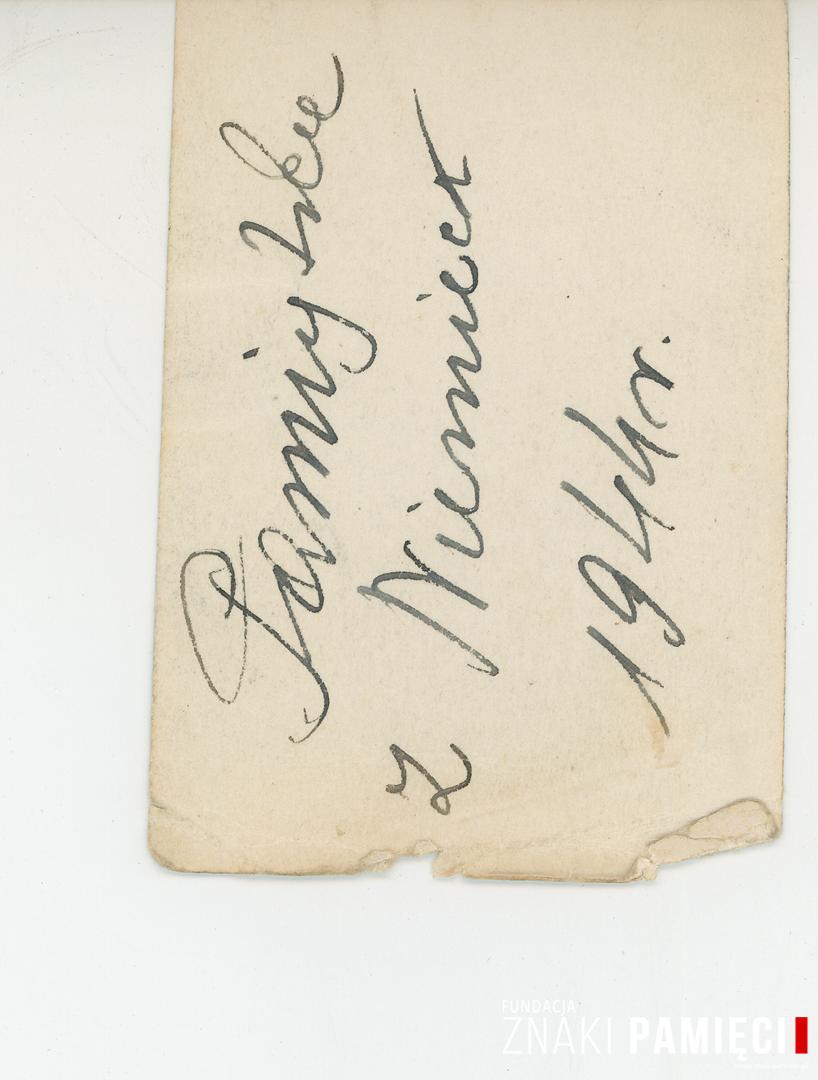 Pamiątka
z Niemieck
1944 r.
FUNDACJA
ZNAKI PAMIĘCI